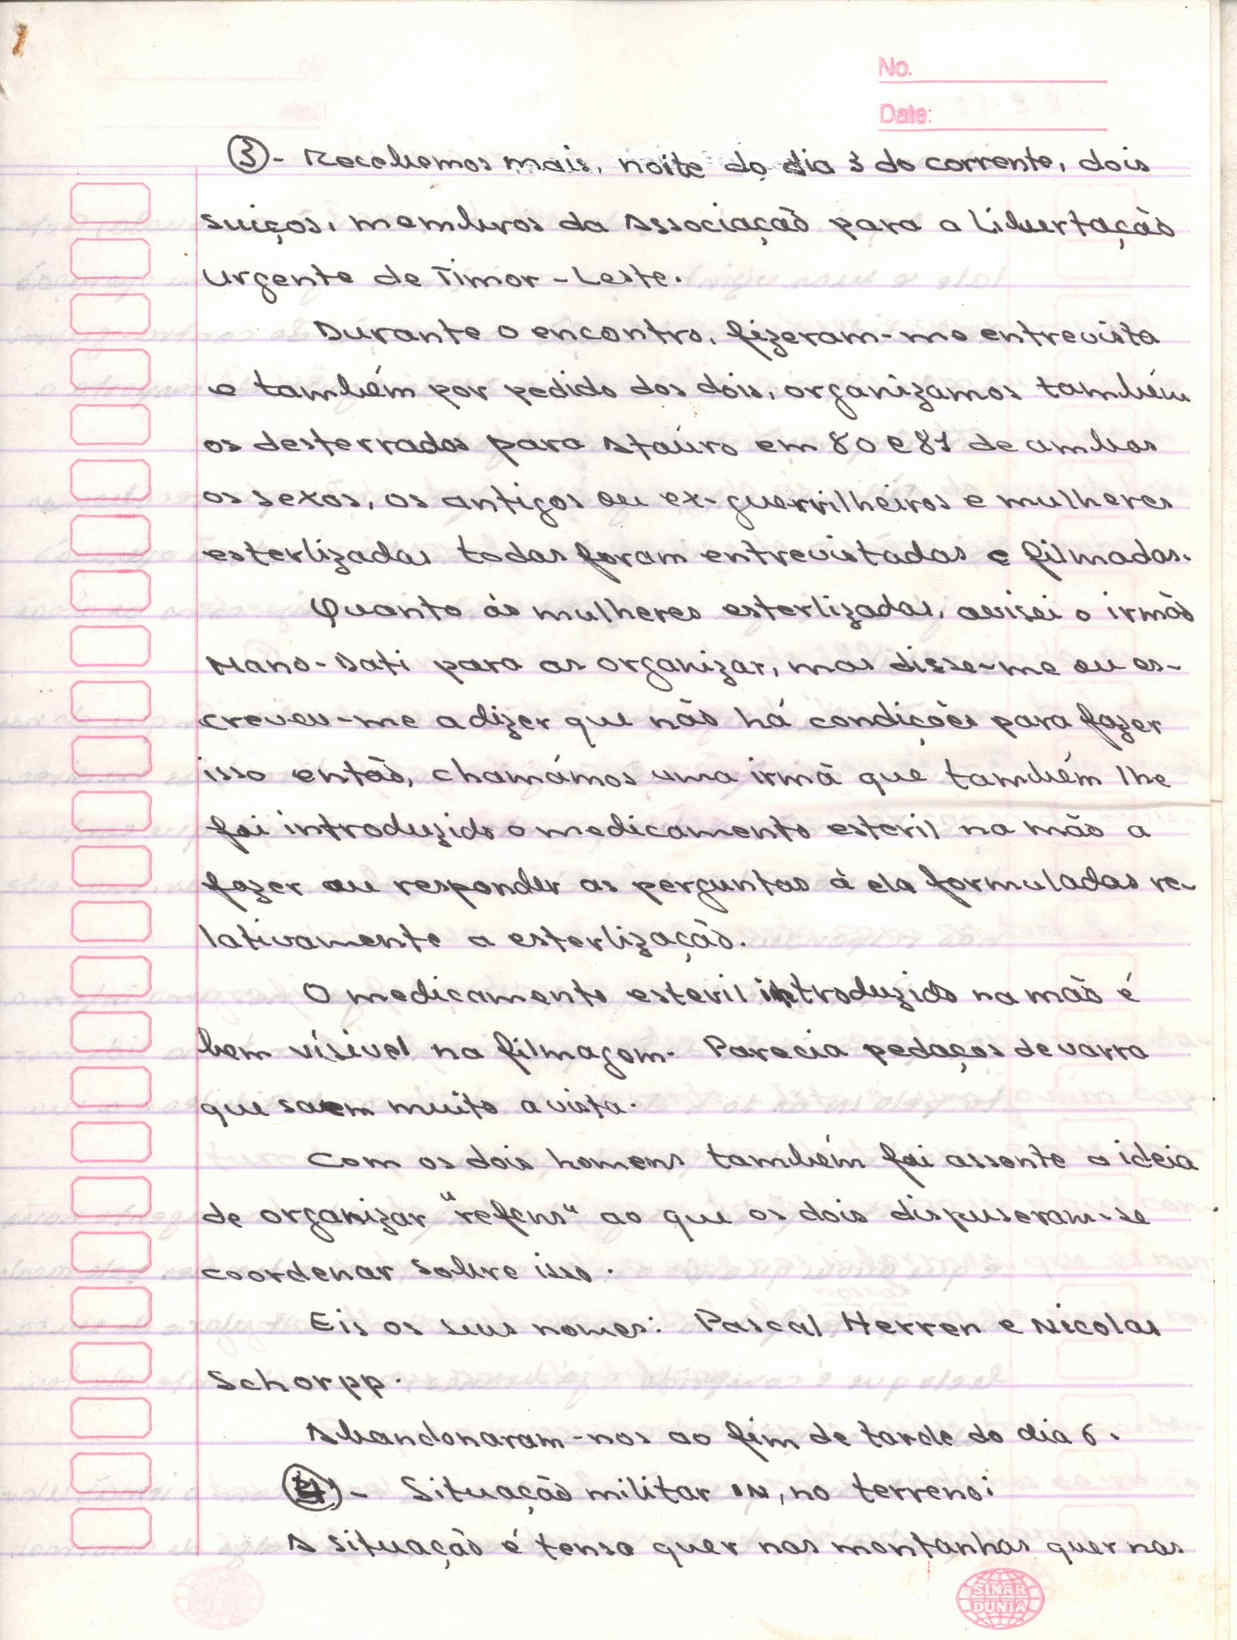 No.
Date:
③- Recebemos mais, noite do dia 3 do corrente, dois
suiços, membros da Associação para a Libertação
Urgente de Timor-Leste.
Durante o encontro, fizeram-me entrevista
e também por pedido dos dois, organizamos também
os desterrados para Ataúro em 80 e 81 de ambos
os sexos, os antigos ou ex-guerrilheiros e mulheres
esterlizadas todas foram entrevistadas e filmadas.
Quanto ás mulheres esterlizadas, avisei o irmão
Mano-Dati para as organizar, mas disse-me ou es-
creveu-me a dizer que não há condições para fazer
isso então, chamámos uma irmã que também lhe
foi introduzido o medicamento esteril na mão a
fazer ou responder as perguntas à ela formuladas re-
lativamente a esterlização.
O medicamento esteril introduzido na mão é
bem vísivel na filmagem. Parecia pedaços de varra
que saem muito a vista.
Com os dois homens também foi assente a ideia
de organizar "refens" ao que os dois dispuseram-se
coordenar sobre isso.
Eis os seus nomes: Pascal Herren e Nicolas
Schorpp.
Abandonaram-nos ao fim de tarde do dia 6.
④- Situação militar IN, no terreno:
A situação é tensa quer nas montanhas quer nas
SINAR
DUNIA